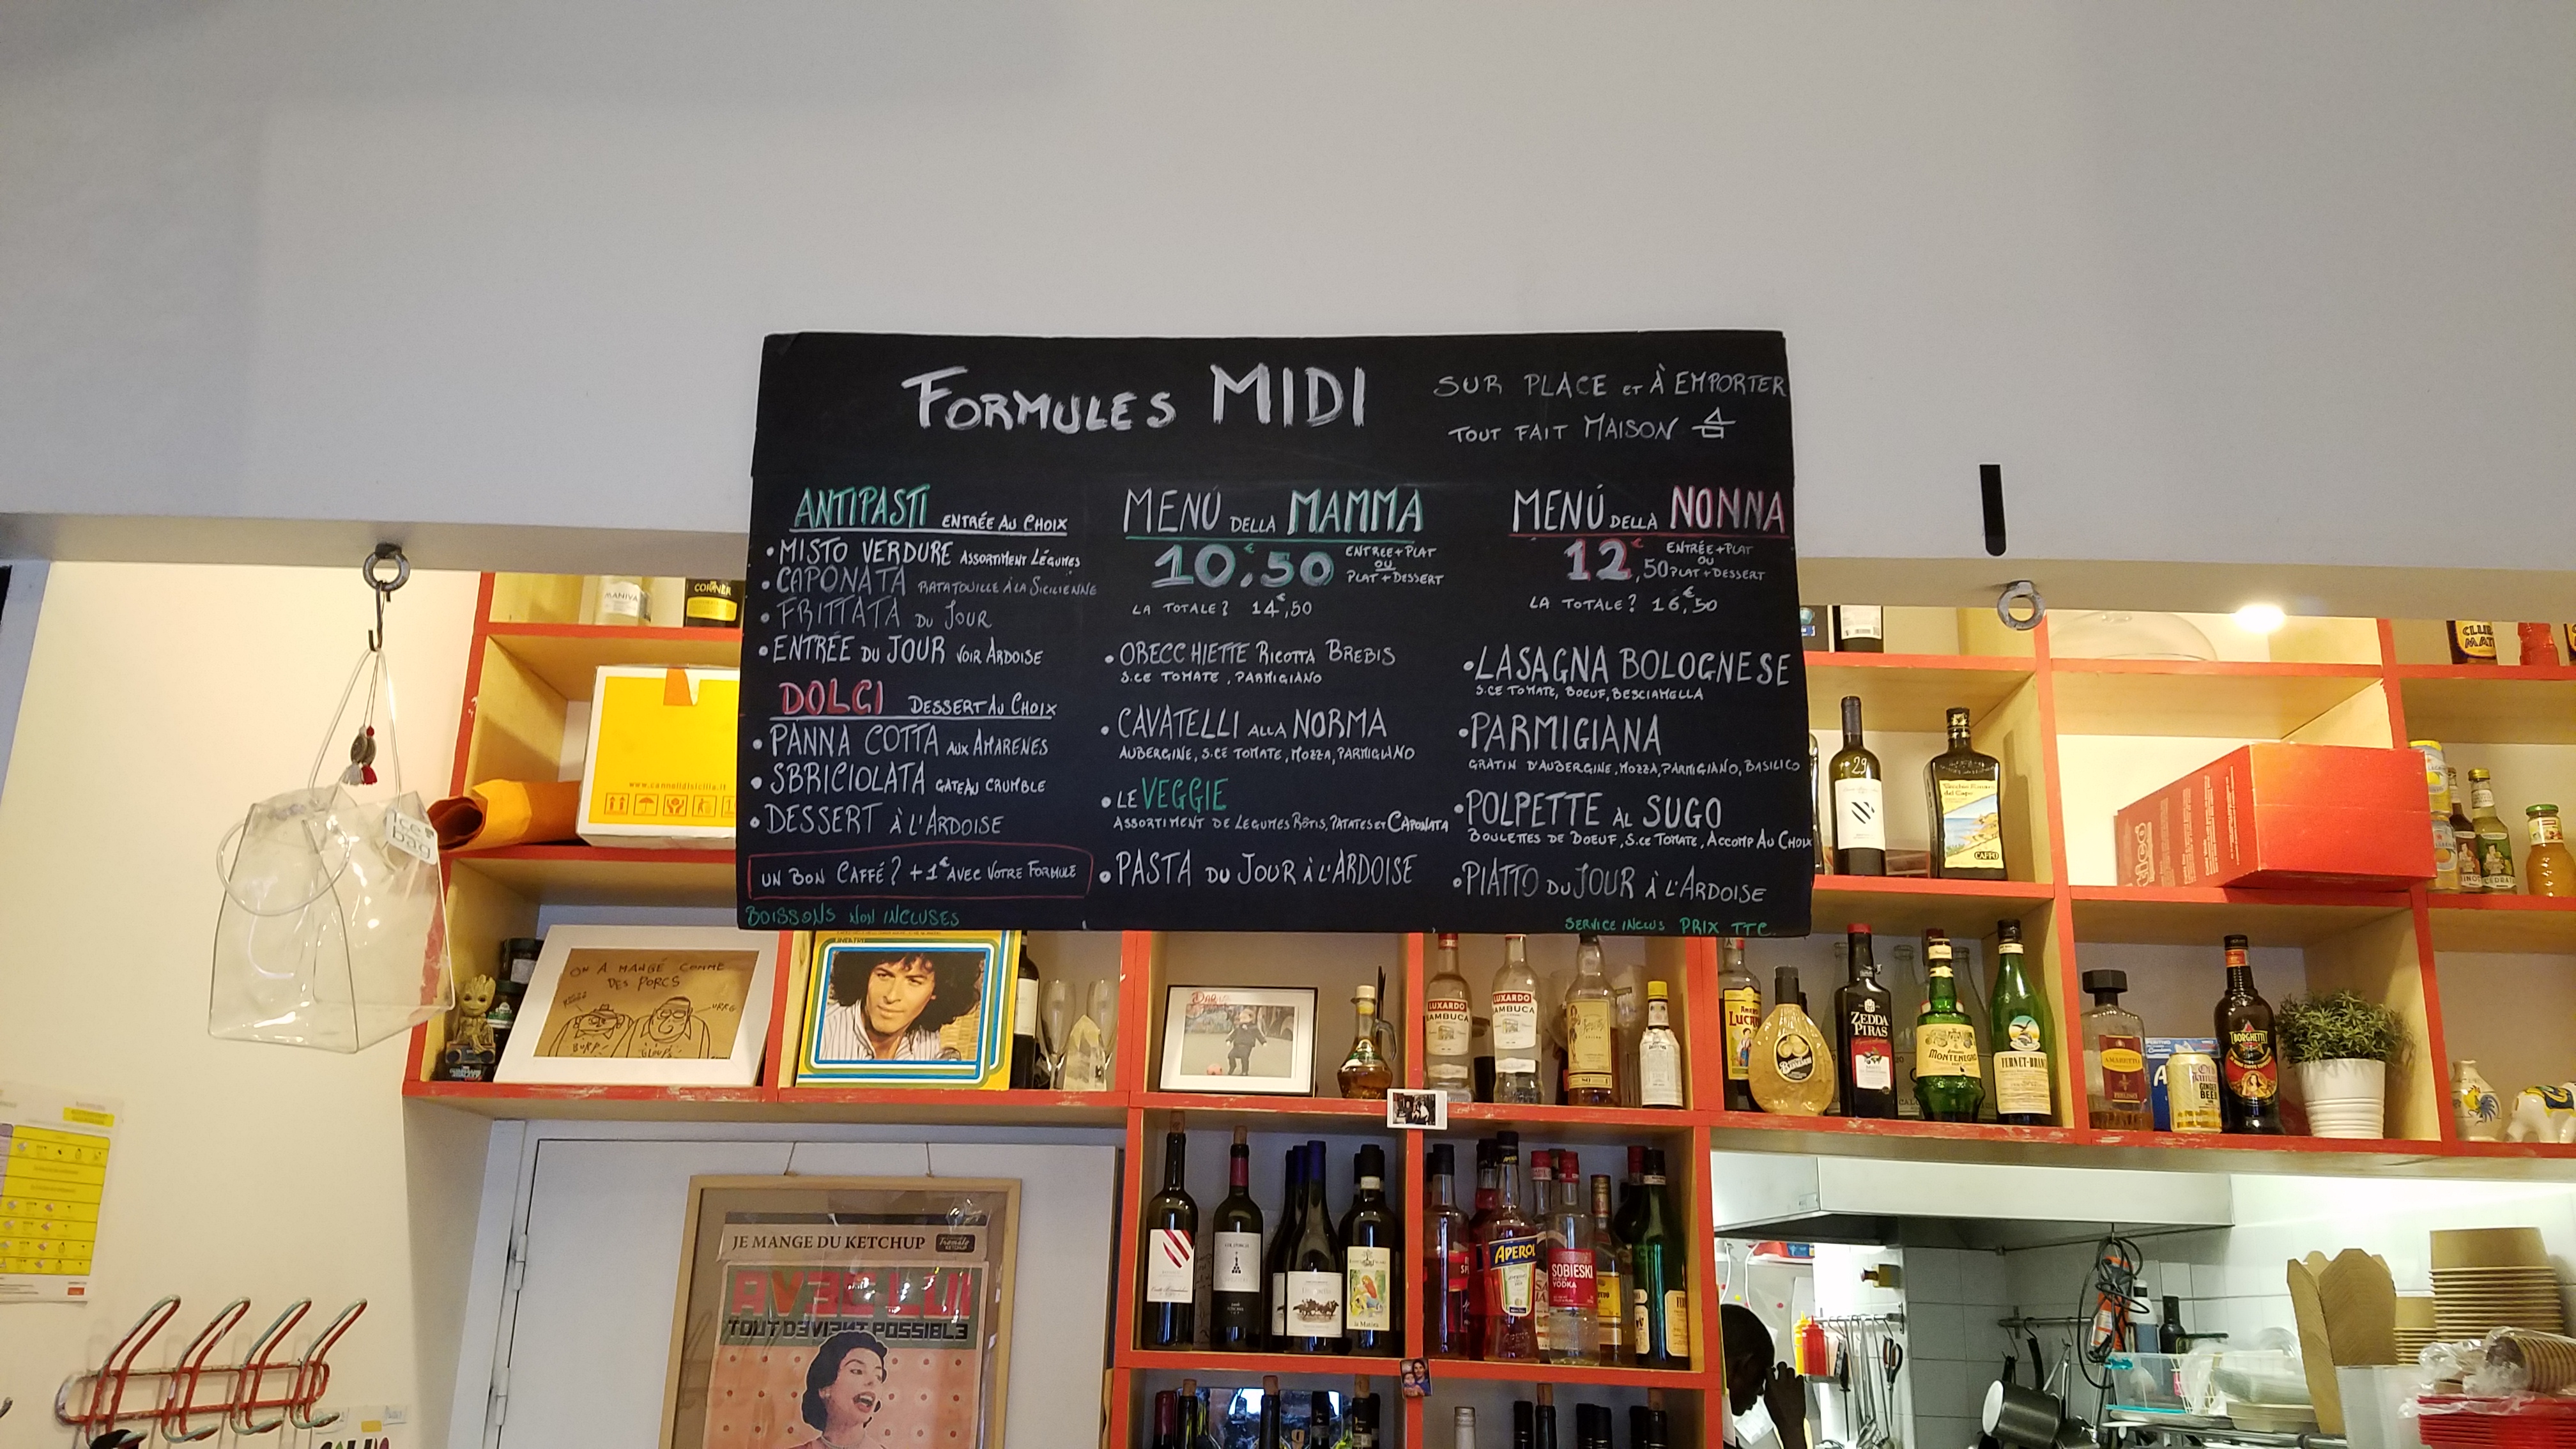 FORMULES MIDI
SUR PLACE ET À EMPORTER
TOUT FAIT MAISON
ANTIPASTI ENTRÉE AU CHOIX
• MISTO VERDURE ASSORTIMENT LÉGUMES
• CAPONATA RATATOUILLE À LA SICILIENNE
• FRITTATA DU JOUR
• ENTRÉE DU JOUR VOIR ARDOISE
DOLCI DESSERT AU CHOIX
• PANNA COTTA AUX AMARENES
• SBRICIOLATA GATEAU CRUMBLE
• DESSERT À L'ARDOISE
UN BON CAFFÉ? +1€ AVEC VOTRE FORMULE
BOISSONS NON INCLUSES
MENÚ DELLA MAMMA
10€.50 ENTREE+PLAT
OU
PLAT+DESSERT
LA TOTALE? 14€,50
• ORECCHIETTE RICOTTA BREBIS
S.CE TOMATE, PARMIGIANO
• CAVATELLI ALLA NORMA
AUBERGINE, S.CE TOMATE, MOZZA, PARMIGIANO
• LE VEGGIE
ASSORTIMENT DE LEGUMES RÔTIS, PATATES ET CAPONATA
• PASTA DU JOUR À L'ARDOISE
MENÚ DELLA NONNA
12€,50 ENTRÉE+PLAT
OU
PLAT+DESSERT
LA TOTALE? 16€,50
• LASAGNA BOLOGNESE
S.CE TOMATE, BOEUF, BESCIAMELLA
• PARMIGIANA
GRATIN D'AUBERGINE, MOZZA, PARMIGIANO, BASILICO
• POLPETTE AL SUGO
BOULETTES DE BOEUF, S.CE TOMATE, ACCOMP AU CHOIX
• PIATTO DU JOUR À L'ARDOISE
SERVICE INCLUS PRIX TTC
MANIVA
CORNER
www.cannolidisicilia.it
Ice
bag
29
Vecchio Amaro
del Capo
CAFFO
CLUB
MAT
ON A MANGÉ COMME
DES PORCS
URRG
BURP
GLOUP
LUXARDO
SAMBUCA
LUXARDO
SAMBUCA
LUCA
ZEDDA
PIRAS
MONTENEGRO
FERNET-BRAN
AMARETTO
GINGER
BEER
BORGHETTI
JE MANGE DU KETCHUP
AVEC LUI
TOUT DEVIENT POSSIBLE
la Matta
APEROL
SOBIESKI
VODKA